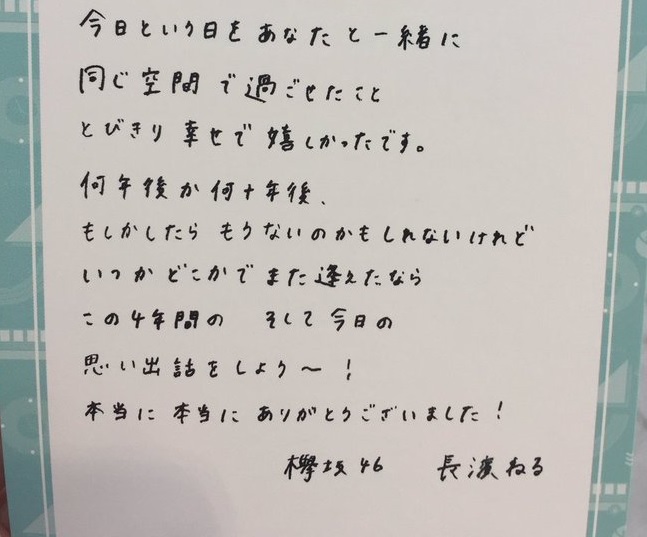 今日という日を あなたと一緒に
同じ空間で過ごせたこと
とびきり幸せで 嬉しかったです。
何年後か何十年後、
もしかしたら もうないのかもしれないけれど
いつかどこかで また逢えたなら
この4年間の そして今日の
思い出話をしよう〜！
本当に本当に ありがとうございました！
欅坂46 長濱ねる